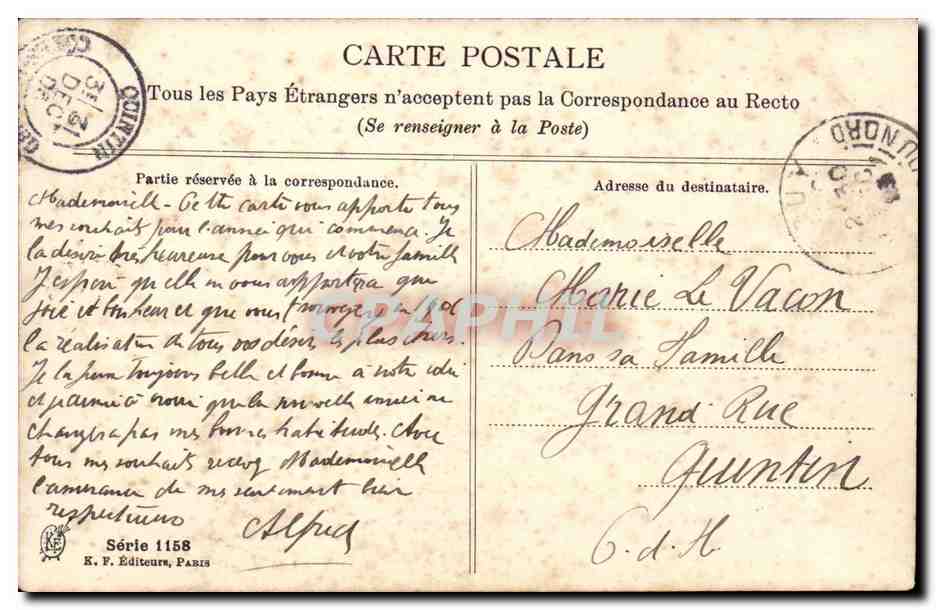 CARTE POSTALE
Tous les Pays Étrangers n'acceptent pas la Correspondance au Recto
(Se renseigner à la Poste)
QUINTIN
31 DEC
NORD
Partie réservée à la correspondance.
Mademoiselle - Cette carte vous apporte tous
mes souhaits pour l'année qui commence. Je
la désire très heureuse pour vous et votre famille
J'espère qu'elle ne vous apportera que
joie et bonheur et que vous trouverez en
la réalisation de tous vos désirs les plus chers.
Je la toujours belle et bonne à votre
et à que la nouvelle année ne
changera pas mes bonnes habitudes. Avec
tous mes souhaits recevez Mademoiselle
l'assurance de mes sentiments bien
respectueux
Alfred
Adresse du destinataire.
Mademoiselle
Marie Le Vacon
Dans sa famille
Grand Rue
Quintin
C. d. N
CPAPHIL
KF
Série 1158
K. F. Éditeurs, PARIS